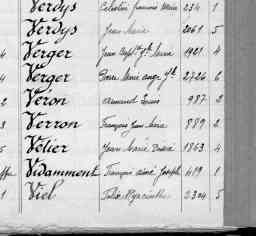 Verdys Célestin francois Marie 234 1
Verdys Jean Marie 2061 5
4 Verger Jean Marie 1921 4
4 Verger Pierre Marie ange 2726 6
2 Véron Armand Louis 987 2
3 Verron François Jean Marie 889 2
5 Vétier Jean Marie 1863 4
Vidamment François aimé Joseph 419 1
1 Viel Jules Hyacinthe 2304 5